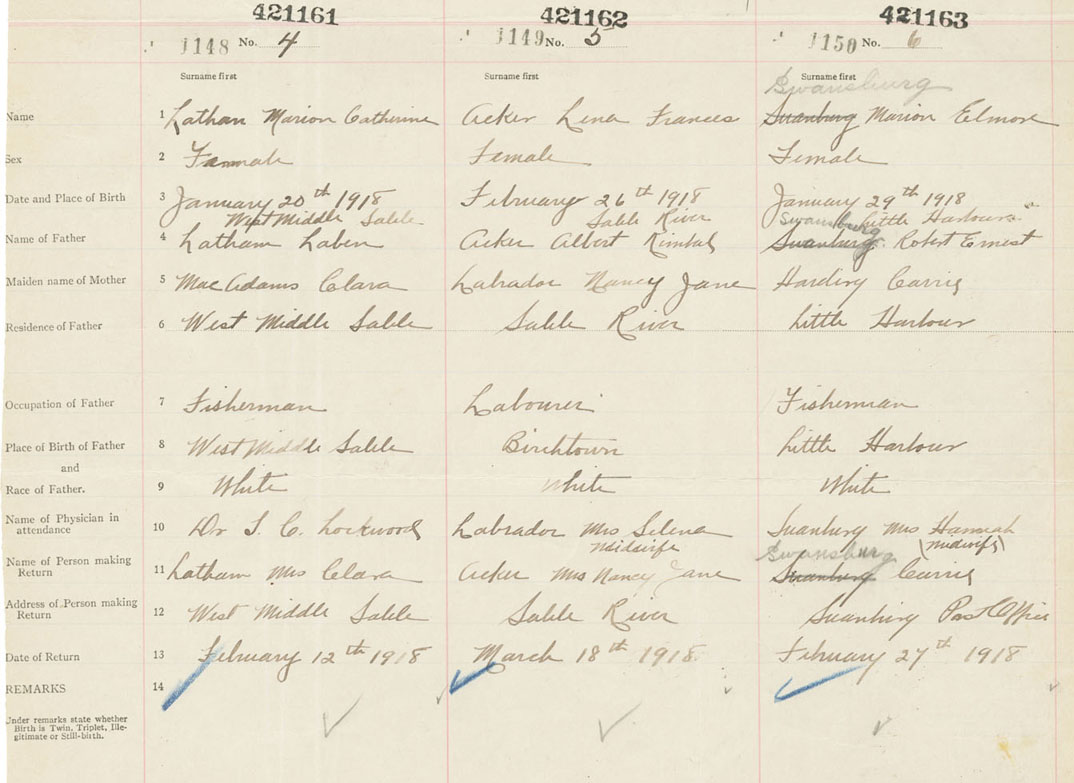 421161 421162 421163
1148 No. 4 1149 No. 5 1150 No. 6
Surname first Surname first Surname first
Swansburg
Name 1 Lathan Marion Catherine Acker Lena Frances Swanburg Marion Elmore
Sex 2 Female Female Female
Date and Place of Birth 3 January 20th 1918 February 26th 1918 January 29th 1918
West Middle Sable Sable River Swansburg Little Harbour
Name of Father 4 Latham Laben Acker Albert Kimbal Swanburg Robert Ernest
Maiden name of Mother 5 MacAdams Clara Labrador Nancy Jane Harding Carrie
Residence of Father 6 West Middle Sable Sable River Little Harbour
Occupation of Father 7 Fisherman Labourer Fisherman
Place of Birth of Father 8 West Middle Sable Birchtown Little Harbour
and
Race of Father. 9 White White White
Name of Physician in
attendance 10 Dr S. C. Lockwood Labrador Mrs Selena Suanburg Mrs Hannah
Midwife (midwife)
Swansburg
Name of Person making
Return 11 Latham Mrs Clara Acker Mrs Nancy Jane Swanburg Carrie
Address of Person making
Return 12 West Middle Sable Sable River Swanburg Post Office
Date of Return 13 February 12th 1918 March 18th 1918. February 27th 1918
REMARKS 14
Under remarks state whether
Birth is Twin, Triplet, Ille-
gitimate or Still-birth.